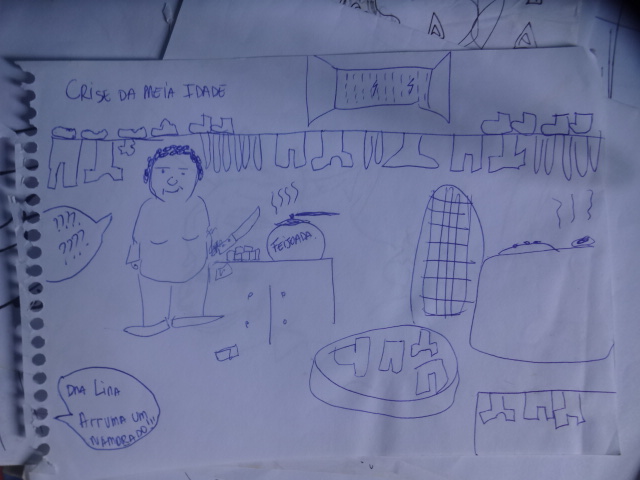 CRISE DA MEIA IDADE
????.
????
...
FEIJOADA
DNA LINA
ARRUMA UM
NAMORADO!!!